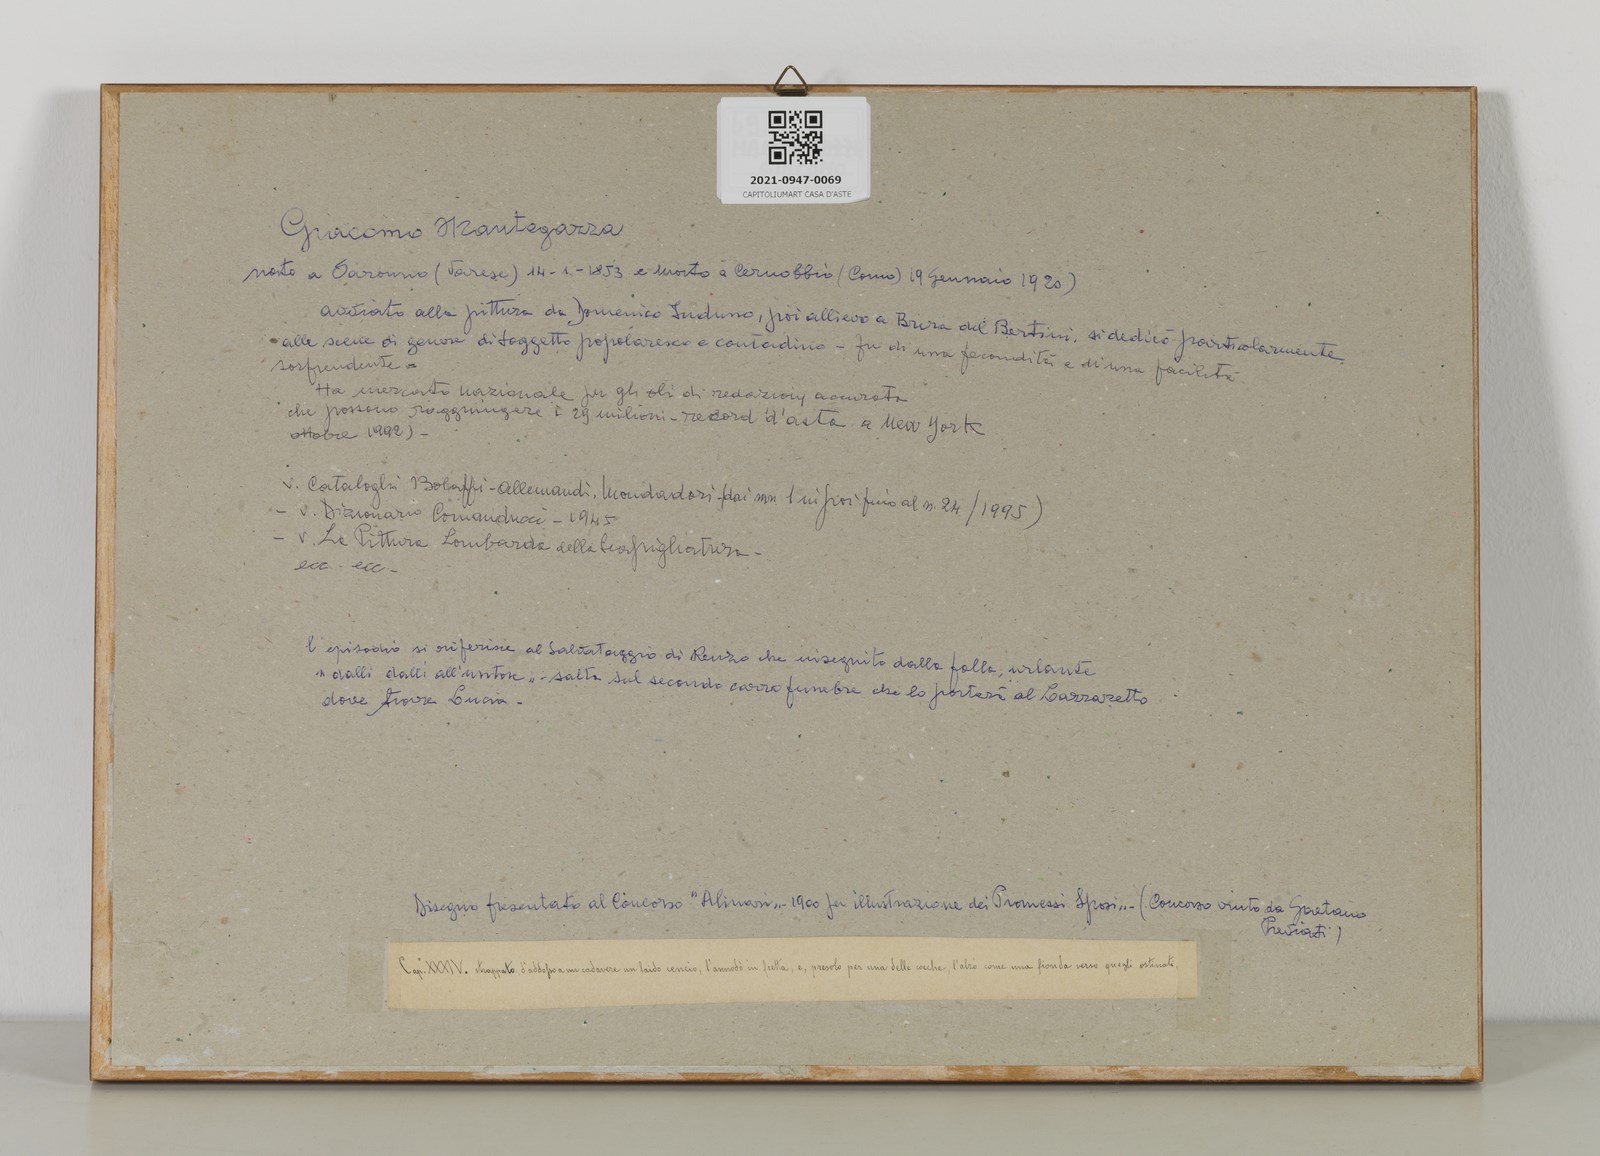 2021-0947-0069
CAPITOLIUMART CASA D'ASTE
Giacomo Mantegazza
nato a Saronno (Varese) 14-1-1853 e morto a Cernobbio (Como) 19 Gennaio 1920)
avviato alla pittura da Domenico Induno, poi allievo a Brera del Bertini, si dedicò particolarmente
alle scene di genere di soggetto popolaresco e contadino - fu di una fecondità e di una facilità
sorprendente -
Ha mercato nazionale per gli oli di redazione accurata
che possono raggiungere i 29 milioni - record d'asta a New York
ottobre 1992) -
v. Cataloghi Bolaffi - Allemandi, Mondadori (dai nn 1 in poi fino al n. 24/1995)
- v. Dizionario Comanducci - 1945
- v. La Pittura Lombarda della Scapigliatura -
ecc - ecc -
l'episodio si riferisce al salvataggio di Renzo che inseguito dalla folla, urlante
"dalli dalli all'untore" - salta sul secondo carro funebre che lo porterà al Lazzaretto
dove trova Lucia -
Disegno presentato al Concorso "Alinari" - 1900 per illustrazione dei Promessi Sposi" - (Concorso vinto da Gaetano
Previati)
Cap. XXXIV. strappato d'addosso a un cadavere un laido cencio, l'annodò in fretta, e, presolo per una delle cocche, l'alzò come una fionda verso quegli ostinati,